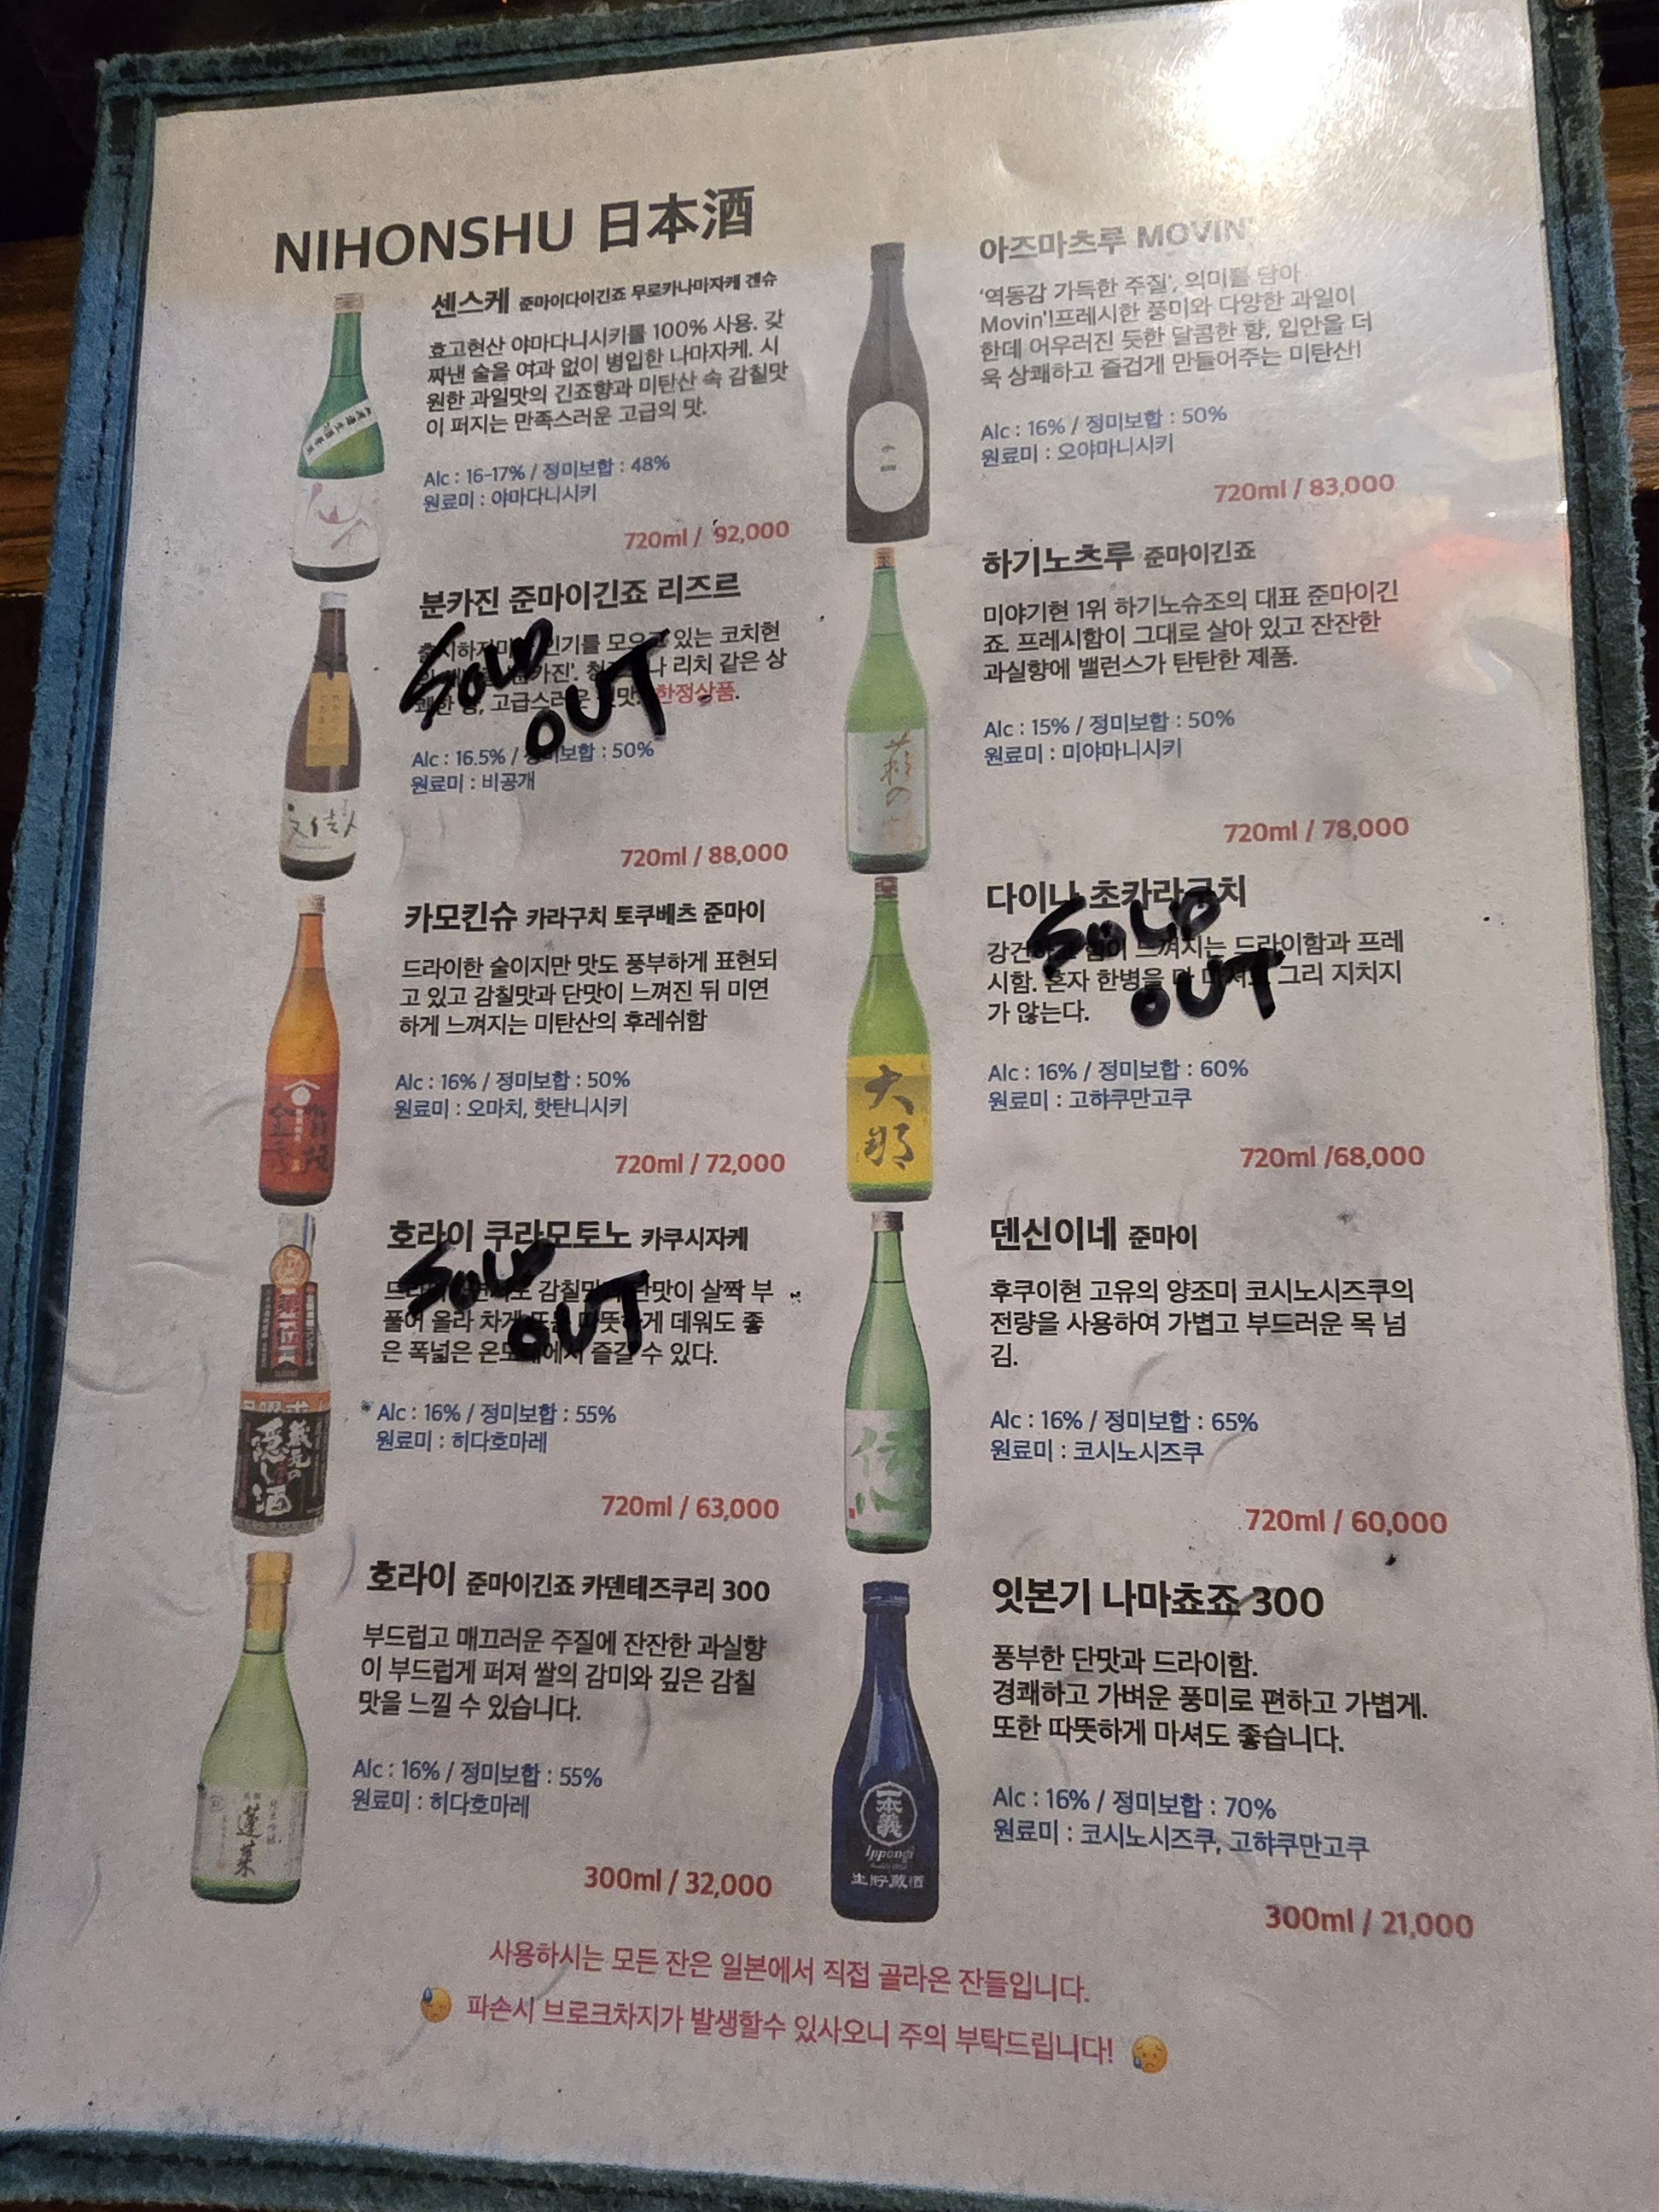 NIHONSHU 日本酒
센스케 준마이다이긴죠 무로카나마자케 겐슈
효고현산 야마다니시키를 100% 사용. 갓
짜낸 술을 여과 없이 병입한 나마자케. 시
원한 과일맛의 긴죠향과 미탄산 속 감칠맛
이 퍼지는 만족스러운 고급의 맛.
Alc : 16-17% / 정미보합 : 48%
원료미 : 야마다니시키
720ml / 92,000
분카진 준마이긴죠 리즈르
인기를 모으고 있는 코치현
리치 같은 상
쾌한 향, 고급스러운 한정상품.
SOLD
OUT
Alc : 16.5% / 정미보합 : 50%
원료미 : 비공개
720ml / 88,000
카모킨슈 카라구치 토쿠베츠 준마이
드라이한 술이지만 맛도 풍부하게 표현되
고 있고 감칠맛과 단맛이 느껴진 뒤 미연
하게 느껴지는 미탄산의 후레쉬함
Alc : 16% / 정미보합 : 50%
원료미 : 오마치, 핫탄니시키
720ml / 72,000
호라이 쿠라모토노 카쿠시자케
감칠맛 단맛이 살짝 부
풀어 올라 차게 또는 따뜻하게 데워도 좋
은 폭넓은 온도대에서 즐길 수 있다.
SOLD
OUT
Alc : 16% / 정미보합 : 55%
원료미 : 히다호마레
720ml / 63,000
호라이 준마이긴죠 카덴테즈쿠리 300
부드럽고 매끄러운 주질에 잔잔한 과실향
이 부드럽게 퍼져 쌀의 감미와 깊은 감칠
맛을 느낄 수 있습니다.
Alc : 16% / 정미보합 : 55%
원료미 : 히다호마레
300ml / 32,000
아즈마츠루 MOVIN'
'역동감 가득한 주질', 의미를 담아
Movin'!프레시한 풍미와 다양한 과일이
한데 어우러진 듯한 달콤한 향, 입안을 더
욱 상쾌하고 즐겁게 만들어주는 미탄산!
Alc : 16% / 정미보합 : 50%
원료미 : 오야마니시키
720ml / 83,000
하기노츠루 준마이긴죠
미야기현 1위 하기노슈조의 대표 준마이긴
죠. 프레시함이 그대로 살아 있고 잔잔한
과실향에 밸런스가 탄탄한 제품.
Alc : 15% / 정미보합 : 50%
원료미 : 미야마니시키
720ml / 78,000
다이나 초카라구치
강건하고 힘이 느껴지는 드라이함과 프레
시함. 혼자 한병을 다 마셔도 그리 지치지
가 않는다.
SOLD
OUT
Alc : 16% / 정미보합 : 60%
원료미 : 고햐쿠만고쿠
720ml /68,000
덴신이네 준마이
후쿠이현 고유의 양조미 코시노시즈쿠의
전량을 사용하여 가볍고 부드러운 목 넘
김.
Alc : 16% / 정미보합 : 65%
원료미 : 코시노시즈쿠
720ml / 60,000
잇본기 나마쵸죠 300
풍부한 단맛과 드라이함.
경쾌하고 가벼운 풍미로 편하고 가볍게.
또한 따뜻하게 마셔도 좋습니다.
Alc : 16% / 정미보합 : 70%
원료미 : 코시노시즈쿠, 고햐쿠만고쿠
300ml / 21,000
萩の鶴
大那
蔵元の
隠し酒
蓬莱
一本義
Ippongi
生貯蔵酒
사용하시는 모든 잔은 일본에서 직접 골라온 잔들입니다.
파손시 브로크차지가 발생할수 있사오니 주의 부탁드립니다!